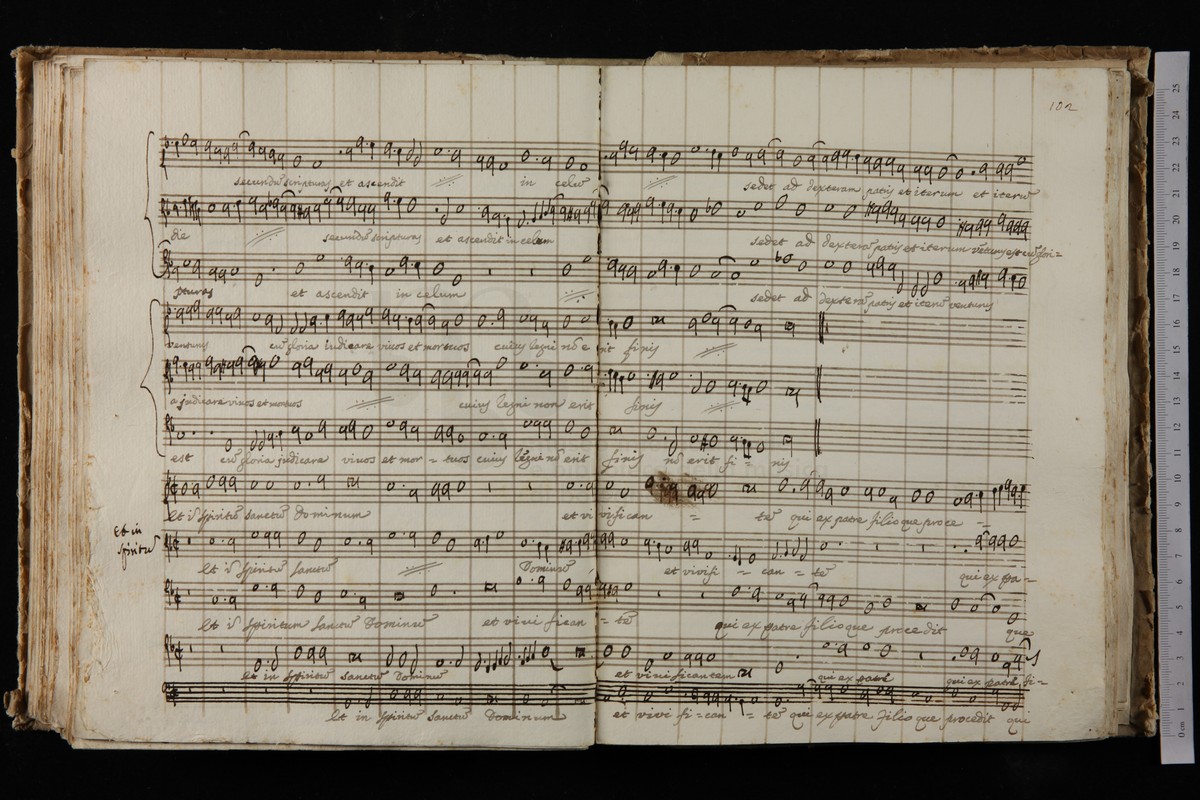 102
secundũ scripturas et ascendit in celũ sedet ad dexteram patris et iterum et iterũ
die secundũ scripturas et ascendit in celum sedet ad dexterã patris et iterum venturus est cũ glori=
pturas et ascendit in celum sedet ad dexterã patris et iterũ venturus
venturus cũ gloria iudicare vivos et mortuos cuius regni nõ erit finis
a judicare vivos et mortuos cuius regni non erit finis
est cũ gloria judicare vivos et mor = tuos cuius regni nõ erit finis nõ erit fi = nis
Et ĩ spiritũ sanctũ Dominum et vivifican = tẽ qui ex patre filioque proce =
Et in
spiritũ
Et ĩ spiritũ sanctũ Dominũ et vivifi = can = tẽ qui ex pa=
Et ĩ spiritum sanctũ Dominũ et vivi fican = tẽ qui ex patre filioque procedit que
et in spiritũ sanctũ Dominũ et vivificantem qui ex patre qui ex patre fi=
Et in spiritũ sanctũ Dominum et vivi fi=can = tẽ qui ex patre filioque procedit qui